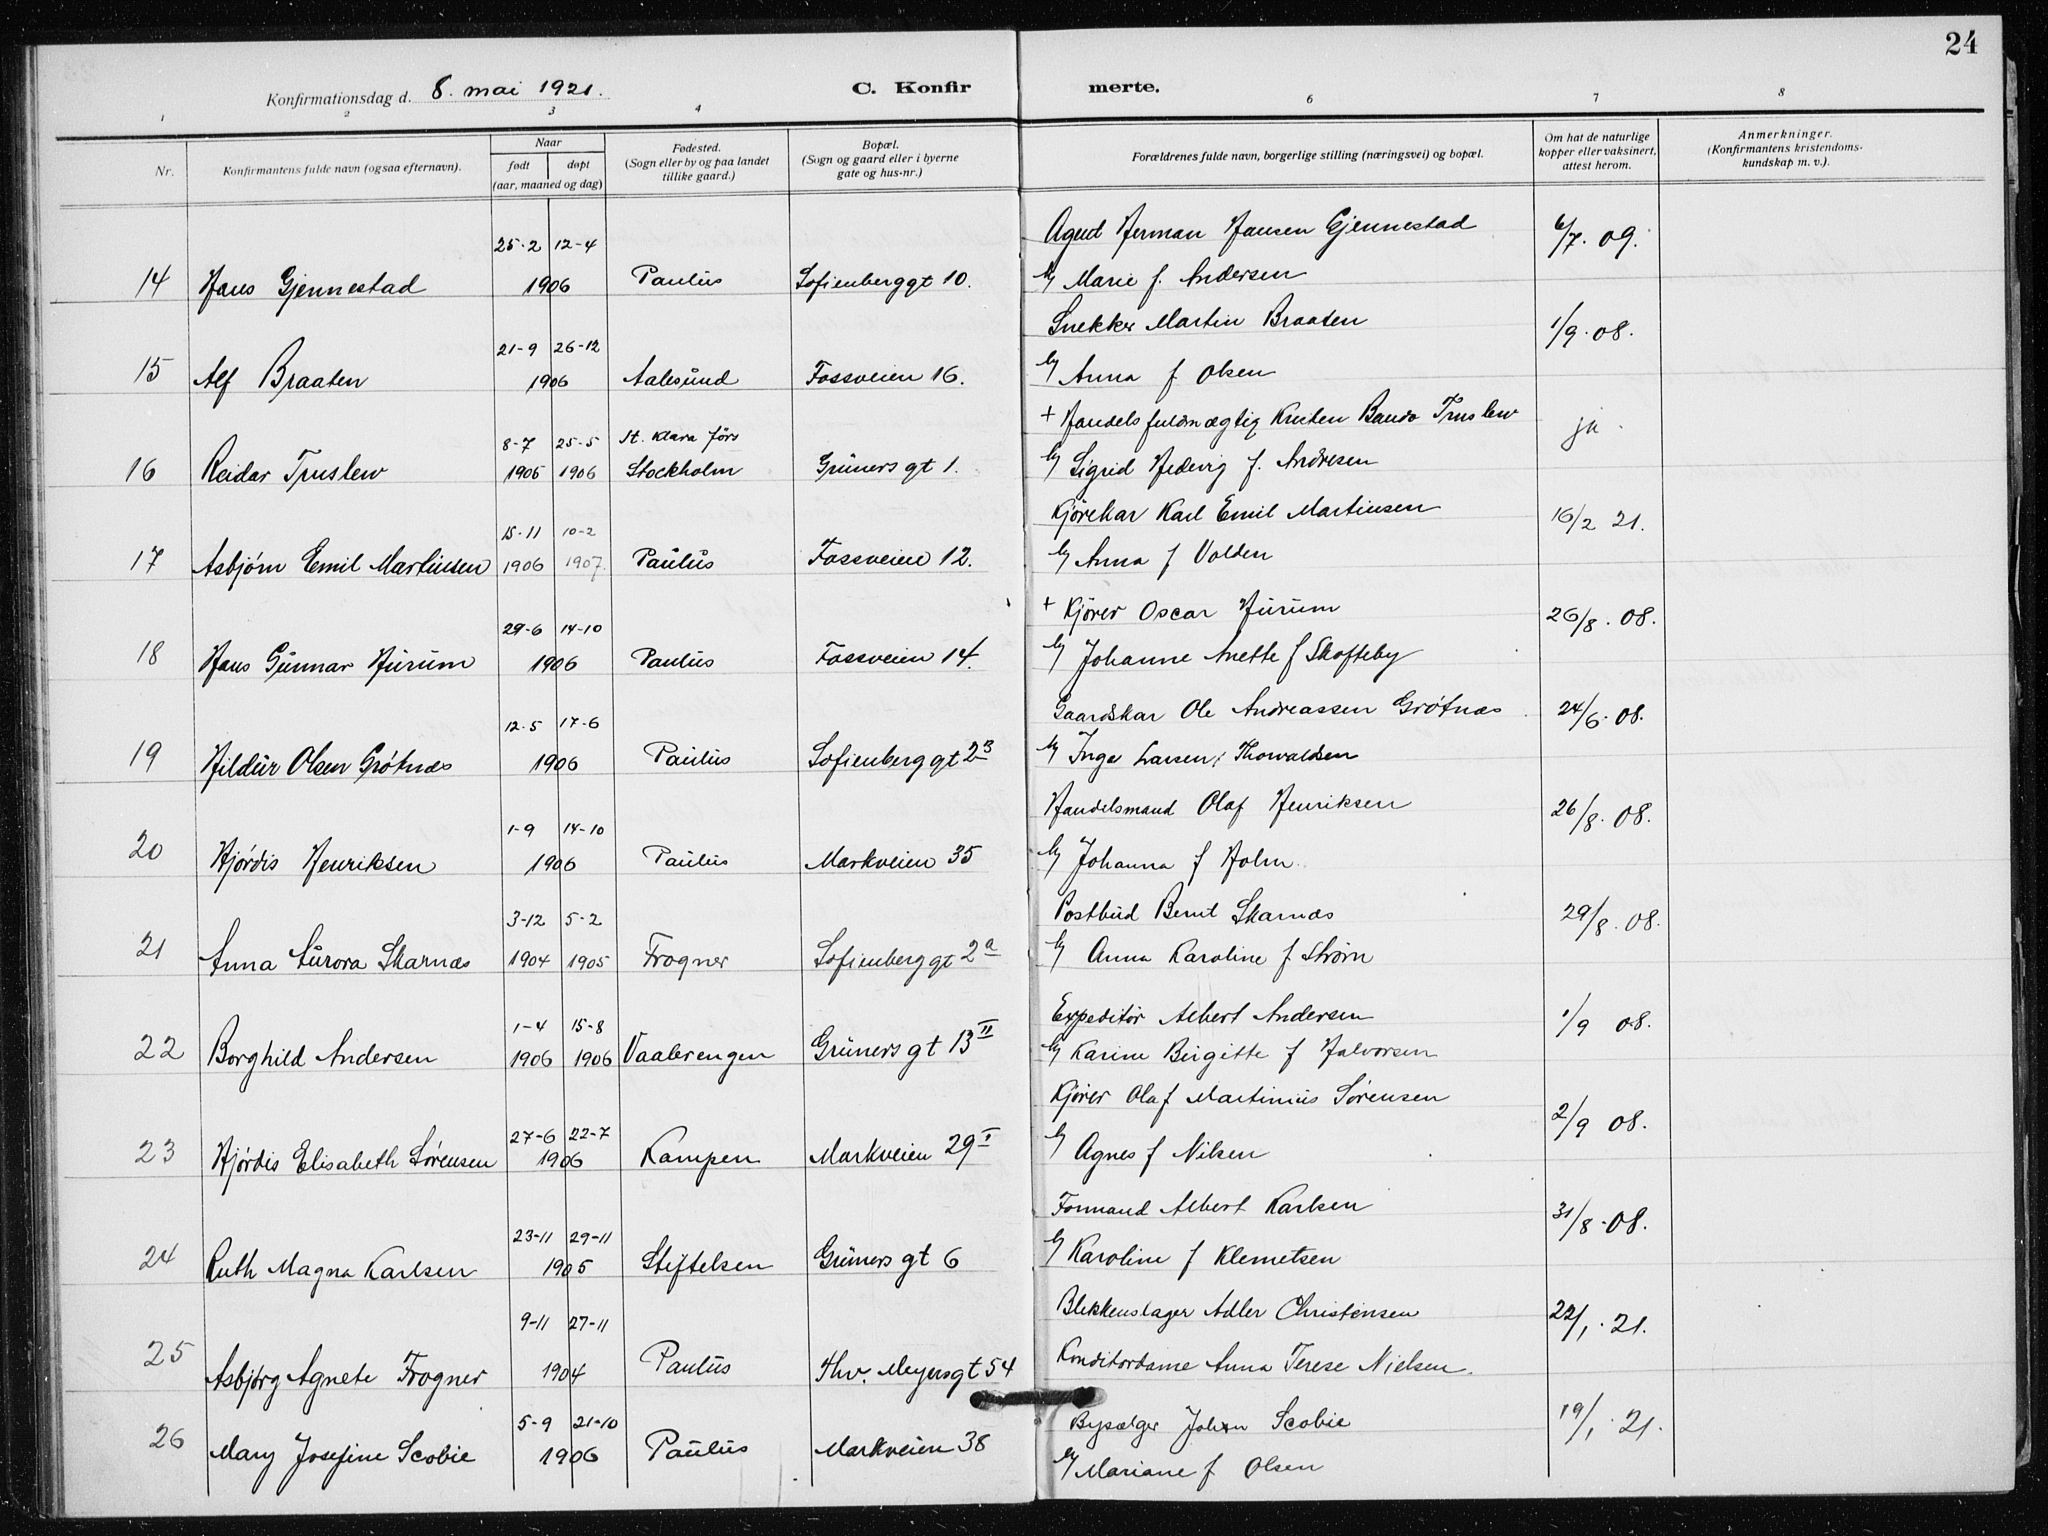 24
Konfirmationsdag d. 8. mai 1921. C. Konfirmerte.
1 2 3 4 6 7 8
Nr. Konfirmantens fulde navn (ogsaa efternavn). Naar født døpt (aar, maaned og dag) Fødested. (Sogn eller by og paa landet tillike gaard.) Bopæl. (Sogn og gaard eller i byerne gate og hus-nr.) Forældrenes fulde navn, borgerlige stilling (næringsvei) og bopæl. Om hat de naturlige kopper eller vaksinert, attest herom. Anmerkninger. (Konfirmantens kristendomskundskap m. v.).
25-2 12-4 Agent Herman Hansen Gjennestad 6/7. 09.
14 Hans Gjennestad 1906 Paulus Sofienberggt 10. Marie f. Andersen
21-9 26-12 Snekker Martin Braaten 1/9. 08.
15 Alf Braaten 1906 Aalesund Fossveien 16. Anna f Olsen
8-7 25-5 St. Klara förs + Handelsfuldmægtig Truslew ja
16 Reidar Truslew 1905 1906 Stockholm Grüners gt 1. Sigrid Hedevig f. Andresen
15-11 10-2 Kjørekar Karl Emil Martinsen 16/2 21.
17 Asbjørn Emil Martinsen 1906 1907. Paulus Fossveien 12. Anna f Volden
29-6 14-10 + Kjører Oscar Hurum 26/8. 08.
18 Hans Gunnar Hurum 1906 Paulus Fossveien 14. Johanne Anette f Skofteby
12-5 17-6 Gaardskar Ole Andreassen Grøtnæs 24/6. 08.
19 Hildur Olsen Grøtnæs 1906 Paulus Sofienberggt 2B Inga Larsen, Thorvaldsen
1-9 14-10 Handelsmand Olaf Henriksen 26/8. 08.
20 Hjørdis Henriksen 1906 Paulus Markveien 35 Johanna f Holm
3-12 5-2 Postbud Bernt Skarnæs 29/8. 08.
21 Anna Aurora Skarnæs 1904 1905 Frogner Sofienberggt 2a Anna Karoline f Strøm
1-4 15-8 Expeditør Albert Andersen 1/9 08.
22 Borghild Andersen 1906 1906 Vaalerengen Grüners gt 13 II Karine Birgitte f Halvorsen
27-6 22-7 Kjører Olaf Martinius Sørensen 2/9 08.
23 Hjørdis Elisabeth Sørensen 1906 Kampen Markveien 29 I Agnes f Nilsen
23-11 29-11 Formand Albert Karlsen 31/8. 08.
24 Ruth Magna Karlsen 1905 Stiftelsen Grüners gt 6 Karoline f Klemetsen
9-11 27-11 Blikkenslager Adler Christensen 22/1. 21.
25 Asbjørg Agnete Frogner 1904 Paulus Thv. Meyersgt 54 Konditordame Anna Terese Nielsen.
5-9 21-10 Bysælger Johan Scobie 19/1. 21.
26 Mary Josefine Scobie 1906 Paulus Markveien 38 Mariane f Olsen